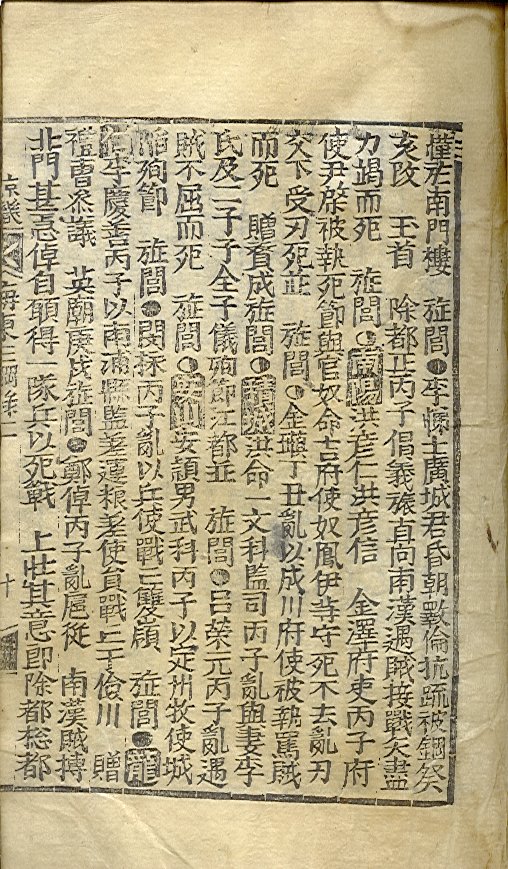 南門樓 旌閭●李㯙士廣城君昏朝斁倫抗疏被錮癸
亥改 玉首 除都正丙子倡義旅直向南漢遇賊接戰矢盡
力竭而死 旌閭●南陽洪彦仁洪彦信 金澤府吏丙子府
使尹棨被執死節與官奴命吉府使奴鳳伊等守死不去亂刃
交下受刃死並 旌閭●金 丁丑亂以成川府使被執罵賊
而死 贈贊成旌閭●積城洪命一文科監司丙子亂與妻李
氏及二子子全子儀殉節江都並 旌閭●呂榮元丙子亂遇
賊不屈而死 旌閭●安山安頴男武科丙子以定州牧使城
陷殉節 旌閭●閔栐丙子亂以兵使戰亡雙嶺 旌閭●龍
仁李慶善丙子以南浦縣監差運粮差使員戰亡于俊川 贈
禮曹叅議 英廟庚戌旌閭●鄭倬丙子亂扈從 南漢賊搏
北門甚急倬自願得一隊兵以死戰 上壯其意即除都総都
京畿 海東三綱 二 十